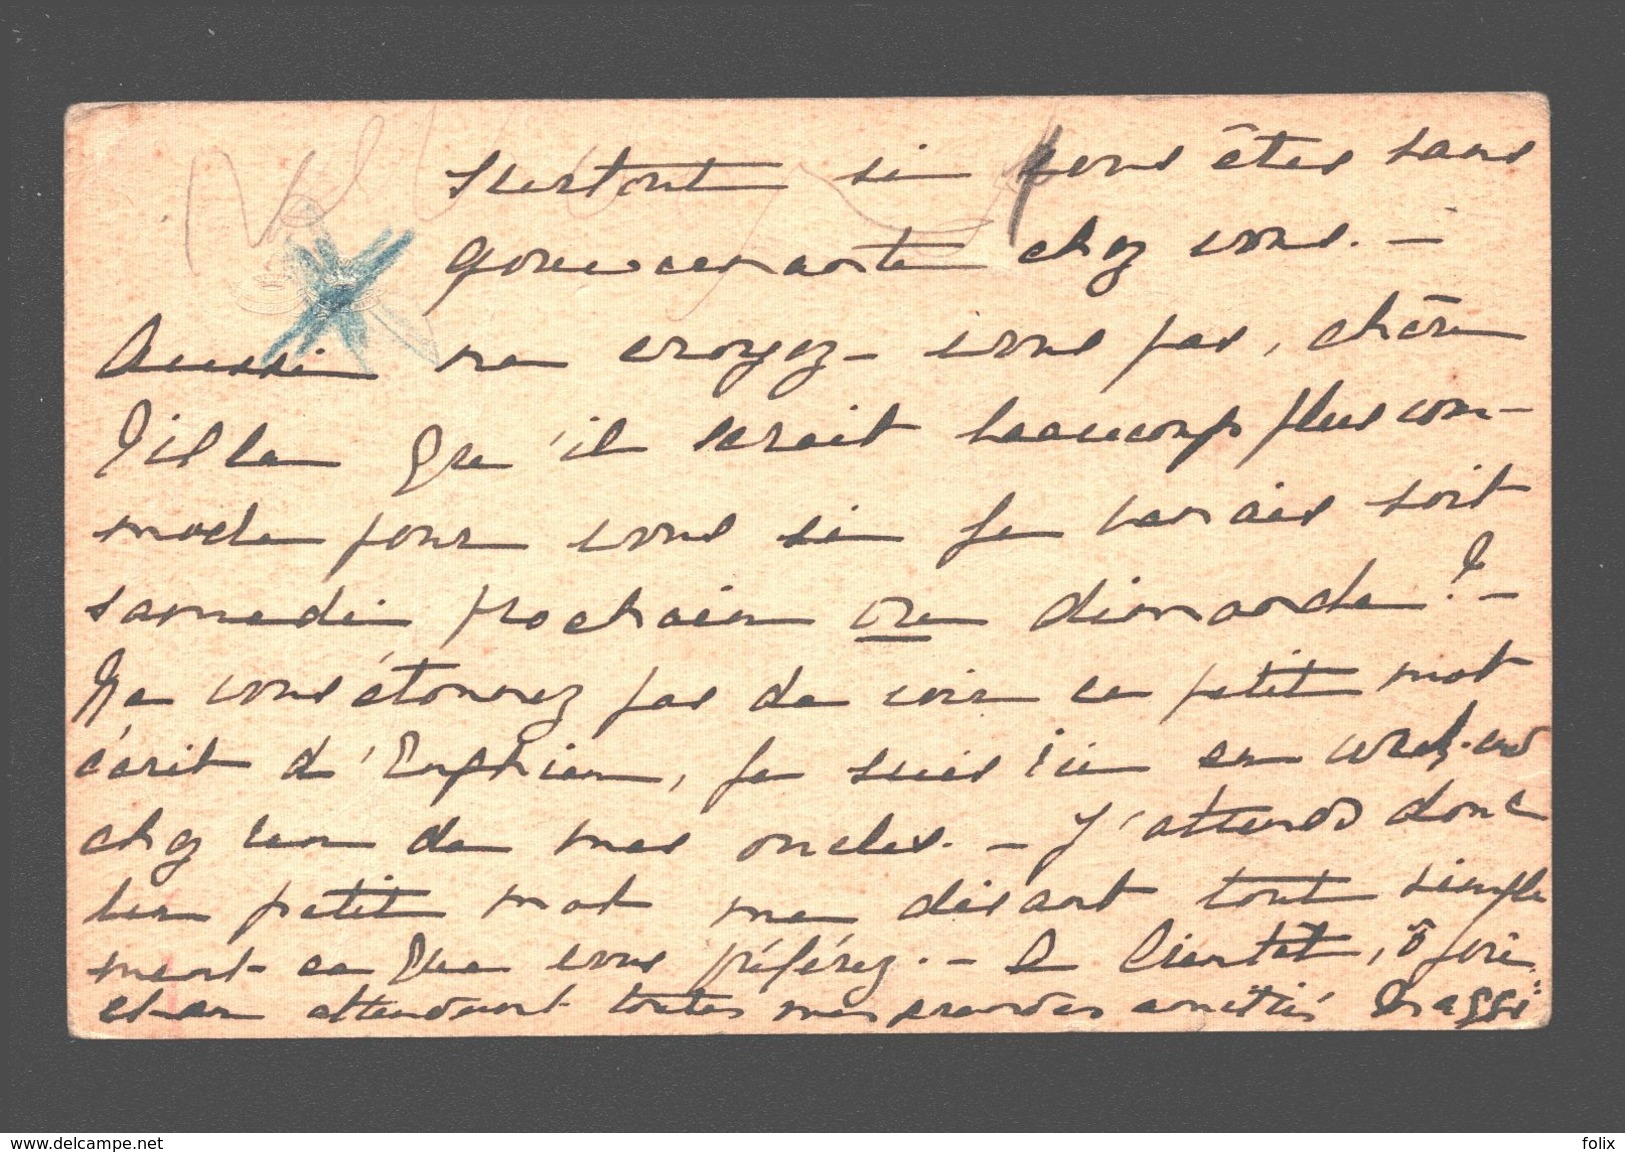 surtout si vous êtes sans
gouvernante chez vous. —
Aussi ne croyez-vous pas, chère
que 'il serait beaucoup plus com-
mode pour vous si je venais soit
samedi prochain ou dimanche? —
Ne vous étonnez pas de voir ce petit mot
écrit d'Enghien, je suis ici en week-end
chez un de mes oncles. — J'attends donc
un petit mot me disant tout simple
ment ce que vous préférez. — A bientôt, ô joie
et en attendant toutes mes grandes amitiés
www.delcampe.net
folix